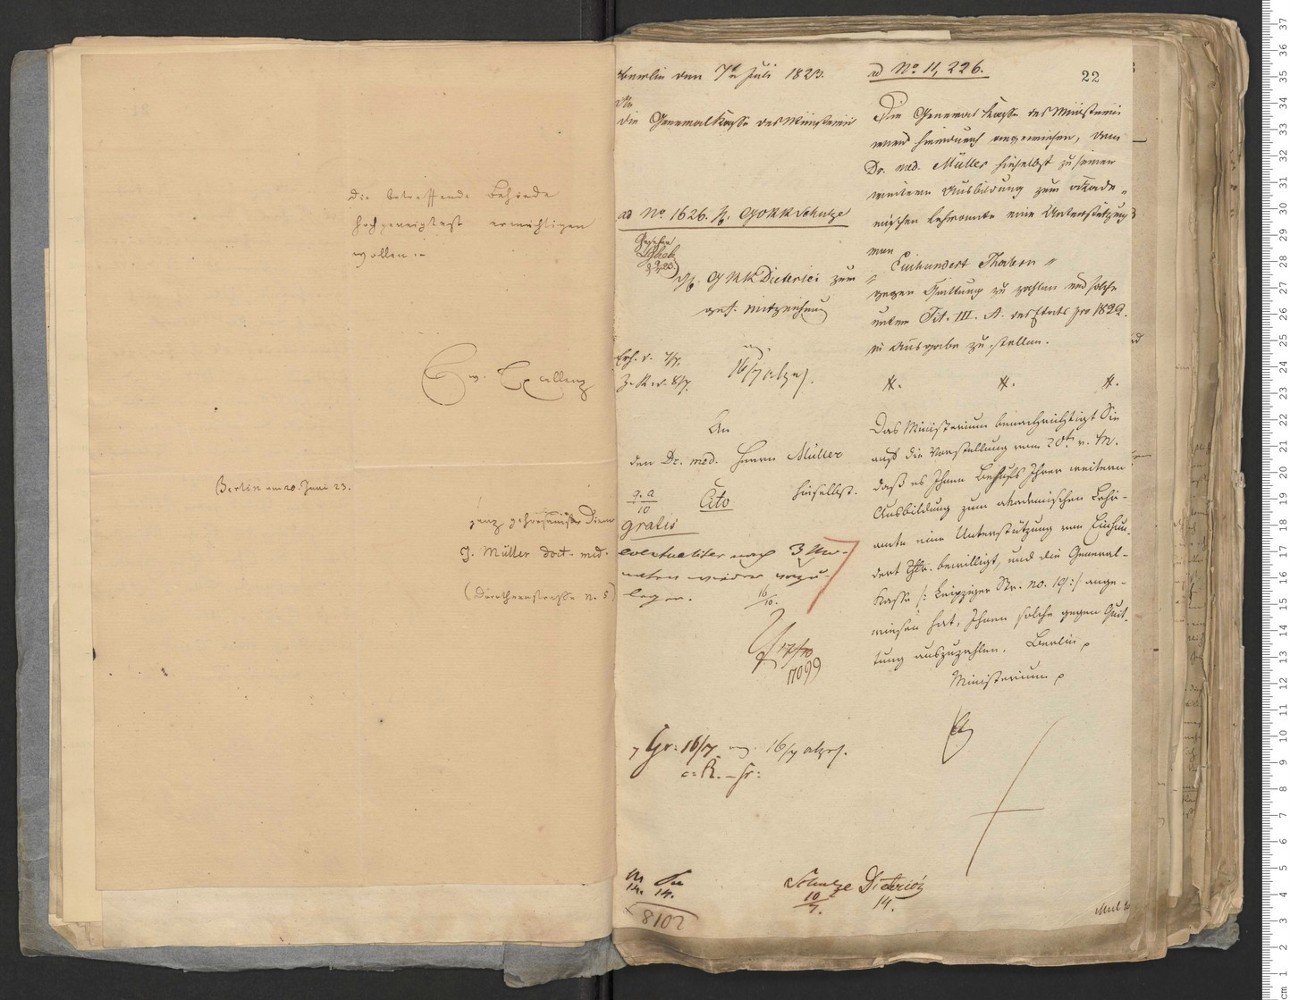 die betreffende Behörde
hochgeneigtest ermächtigen
wollen. –
Ew. Excellenz
Berlin am 20. Juni 23.
ganz gehorsamster Diener
J. Müller doct. med.
(Dorotheenstraße No 5)
Berlin den 7t Juli 1823.
An
die Generalkasse des Ministerii
ad No 1626. H. GORR Schulze
H. GRR Dieterici zum
gef. Mitzeichnung
16/7 abges.
An
den Dr. med. Herrn Müller
hieselbst.
Cito
gratis
eventualiter nach 3 Mo-
naten wieder vorzu-
legen.
16/10.
17/10
17099
Gr: 16/7 16/7 abges.
14. 14.
8102
ad No 11,226.
22
Die General Kasse des Ministerii
wird hierdurch angewiesen, dem
Dr. med. Müller hieselbst zu seiner
weitern Ausbildung zum akade-
mischen Lehramte eine Unterstützung
von
"Einhundert Thalern"
gegen Quittung zu zahlen und solche
unter Tit. III. A. des Etats pro 1822.
in Ausgabe zu stellen.
Das Ministerium benachrichtigt Sie
auf die Vorstellung vom 20t v. M.
daß es Ihnen Behufs Ihrer weitern
Ausbildung zum akademischen Lehr-
amte eine Unterstützung von Einhun-
dert Thlr. bewilligt, und die General-
Kasse /: Leipziger Str. no. 19 :/ ange-
wiesen hat, Ihnen solche gegen Quit-
tung auszuzahlen. Berlin
Ministerium
Schulze Dieterici
10/7. 14.